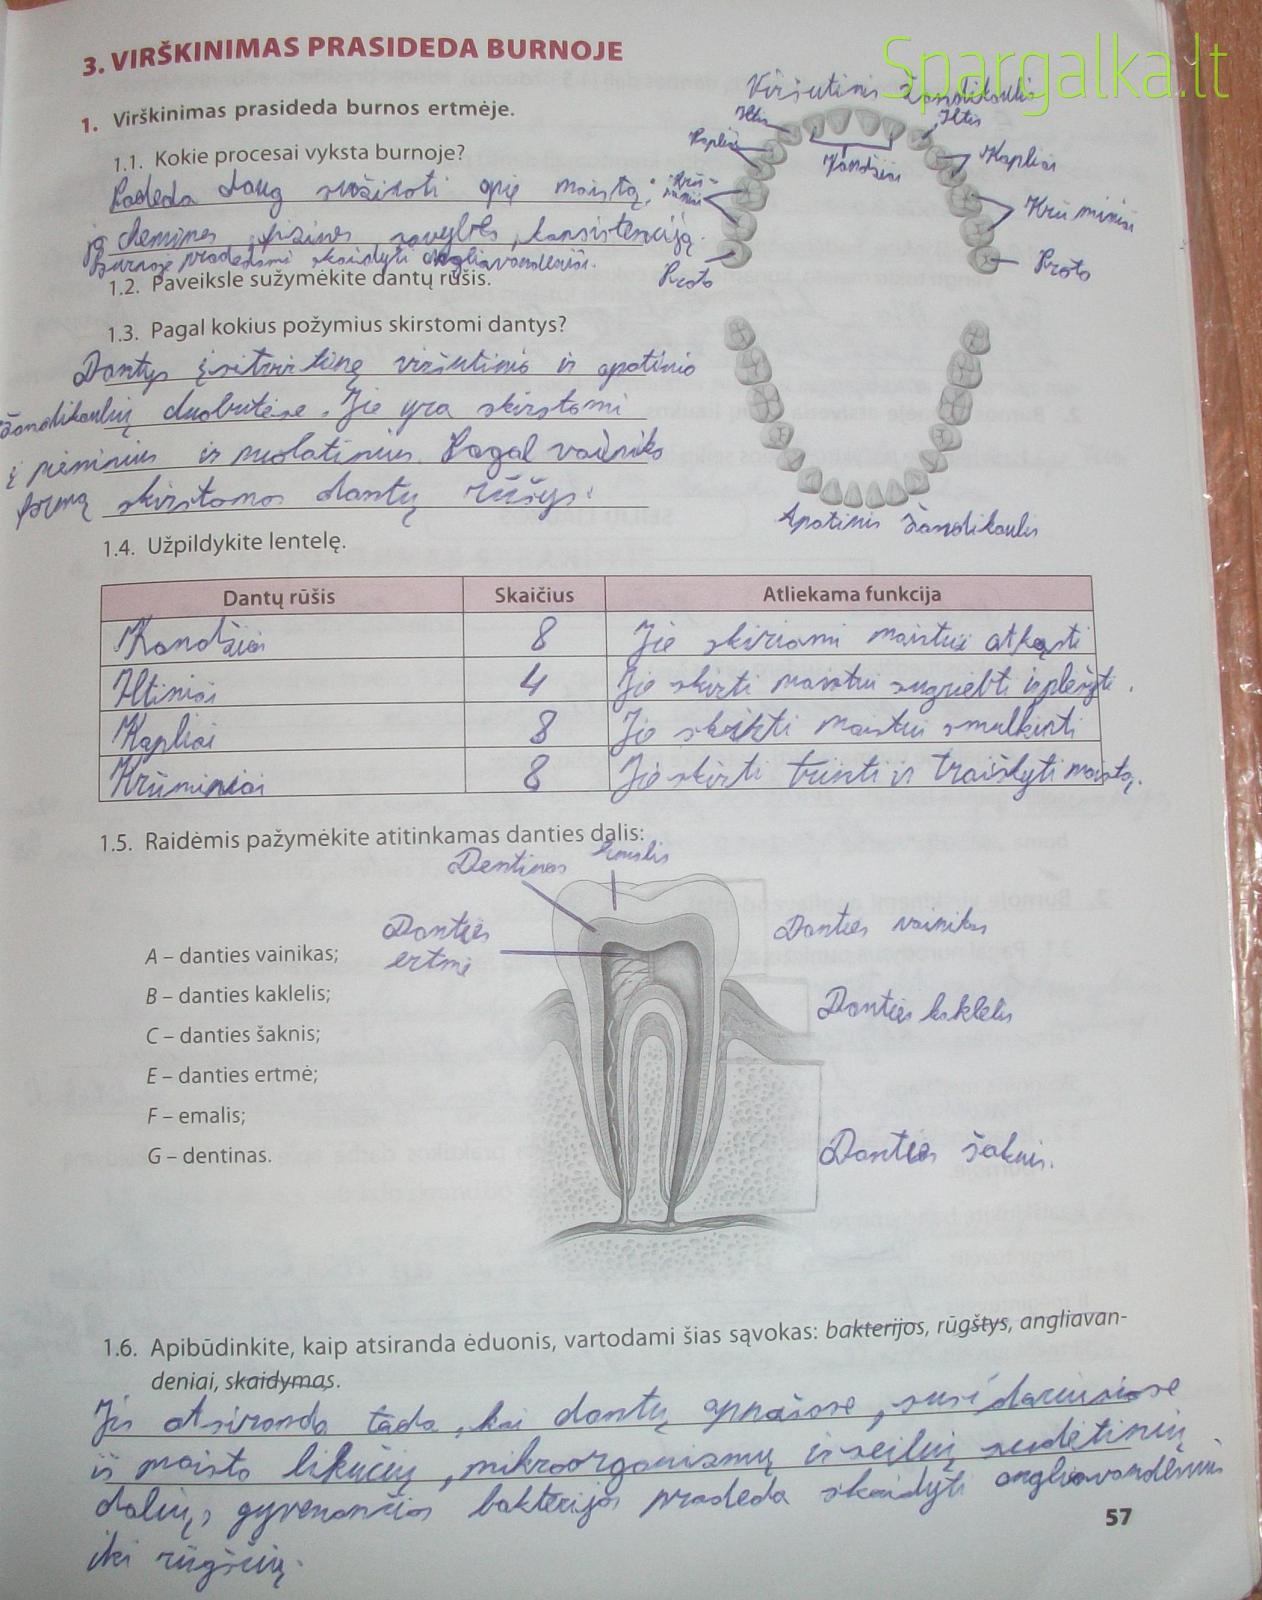 Spargalka.lt
3. VIRŠKINIMAS PRASIDEDA BURNOJE
1. Virškinimas prasideda burnos ertmėje.
1.1. Kokie procesai vyksta burnoje?
Padeda daug sužinoti apie maistą:
jo chemines, fizines savybes, konsistenciją.
Burnoje pradedami skaidyti angliavandeniai.
Viršutinis žandikaulis
Iltis
Iltis
Kapliai
Kandžiai
Kapliai
Krūminiai
Krūminiai
Proto
Proto
1.2. Paveiksle sužymėkite dantų rūšis.
1.3. Pagal kokius požymius skirstomi dantys?
Dantys įsitvirtinę viršutinio ir apatinio
žandikaulių duobutėse. Jie yra skirstomi
į pieninius ir nuolatinius. Pagal vainiko
formą skirstomos dantų rūšys.
Apatinis žandikaulis
1.4. Užpildykite lentelę.
Dantų rūšis Skaičius Atliekama funkcija
Kandžiai 8 Jie skiriami maistui atkąsti
Iltiniai 4 Jie skirti maistui sugriebti ir plėšyti.
Kapliai 8 Jie skirti maistui smulkinti
Krūminiai 8 Jie skirti trinti ir traiškyti maistą.
1.5. Raidėmis pažymėkite atitinkamas danties dalis:
Dentinas
Emalis
Danties
ertmė
Danties vainikas
A – danties vainikas;
B – danties kaklelis;
Danties kaklelis
C – danties šaknis;
E – danties ertmė;
F – emalis;
G – dentinas.
Danties šaknis.
1.6. Apibūdinkite, kaip atsiranda ėduonis, vartodami šias sąvokas: bakterijos, rūgštys, angliavan-
deniai, skaidymas.
Jis atsiranda tada, kai dantų apnašose, susidariusiose
iš maisto likučių, mikroorganizmų ir seilių sudėtinių
dalių, gyvenančios bakterijos pradeda skaidyti angliavandenius
iki rūgščių.
57